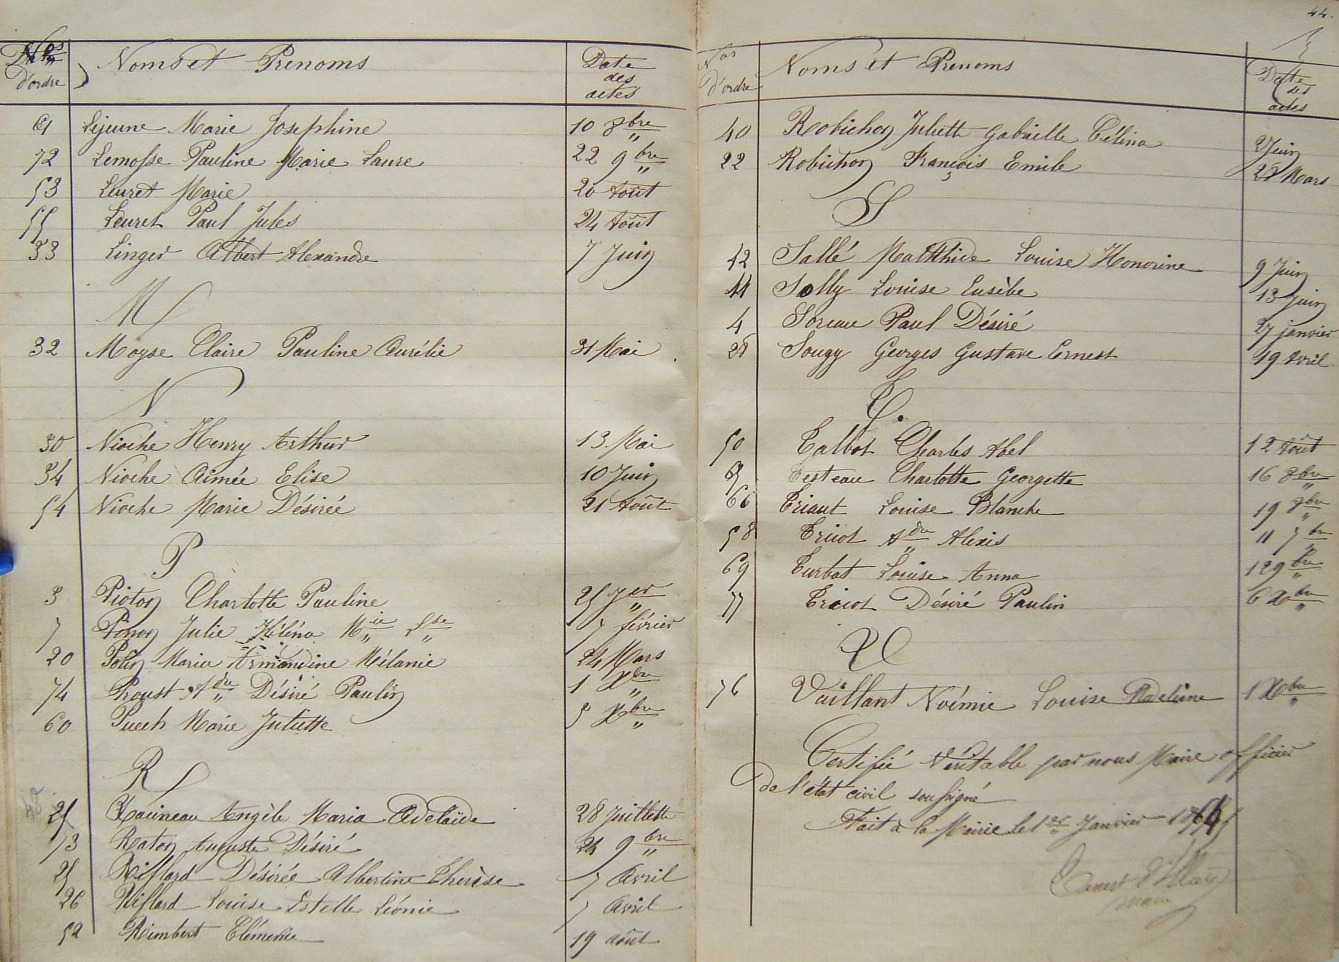 Nos d'ordre Noms et Prenoms Date des actes
61 Lejeune Marie Josephine 10 8bre
72 Lemosse Pauline Marie Laure 22 9bre
53 Leuret Marie 20 Août
55 Leuret Paul Jules 24 Août
33 Linger Albert Alexandre 7 Juin
M
32 Moyse Claire Pauline Aurélie 31 Mai
N
30 Nioche Henry Arthur 13 Mai
34 Nioche Aimée Elise 10 Juin
54 Nioche Marie Désirée 21 Août
P
3 Piéton Charlotte Pauline 25 Jer
7 Julie Héléna Mie Lse 7 février
20 Maria Armandine Mélanie 24 Mars
74 Proust Désiré Paulin 1 Xbre
60 Puech Marie Juliette 5 8bre
R
Raineau Angèle Maria Adelaïde 28 Juillette
73 Raton Auguste Désiré 24 9bre
25 Rillard Désirée Albertine Therèse 7 Avril
26 Rillard Louise Estelle Léonie 7 Avril
52 Rimbert Clémence 19 Août
44
Nos d'ordre Noms et Prenoms Date des actes
40 Robichon Juliette Gabrielle Célina 2 Juin
22 Robichon François Emile 28 Mars
S
42 Sallé Matthide Louise Honorine 9 Juin
44 Solly Louise Eusèbe 13 juin
4 Soreau Paul Désiré 27 janvier
28 Sougy Georges Gustave Ernest 19 Avril
T.
50 Talbot Charles Abel 12 Août
65 Testeau Charlotte Georgette 16 8bre
66 Triaut Louise Blanche 19 8bre
58 Tricot Alexis 11 7bre
69 Turbat Louise Anna 12 9bre
77 Tricot Désiré Paulin 6 Xbre
V
76 Vaillant Noémie Louise Madeleine 1 Xbre
Certifié Véritable par nous Maire officier
de l'état civil soussigné
Fait à la Mairie le 1er Janvier
maire